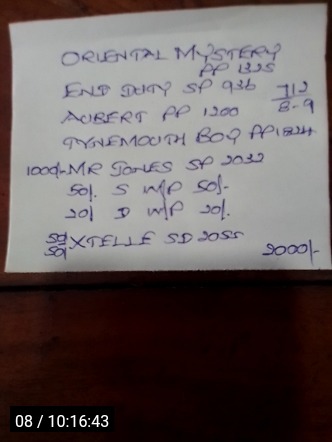 ORIENTAL MYSTERY
PP 1325
END DUTY SP 936
712
8-9
AUBERT PP 1200
TYNEMOUTH BOY PP 1824
1000/- MR JONES SP 2032
50/. S W/P 50/-
20/ D W/P 20/.
50/50/ XTELLE SD 2055
2000/-
08 / 10:16:43